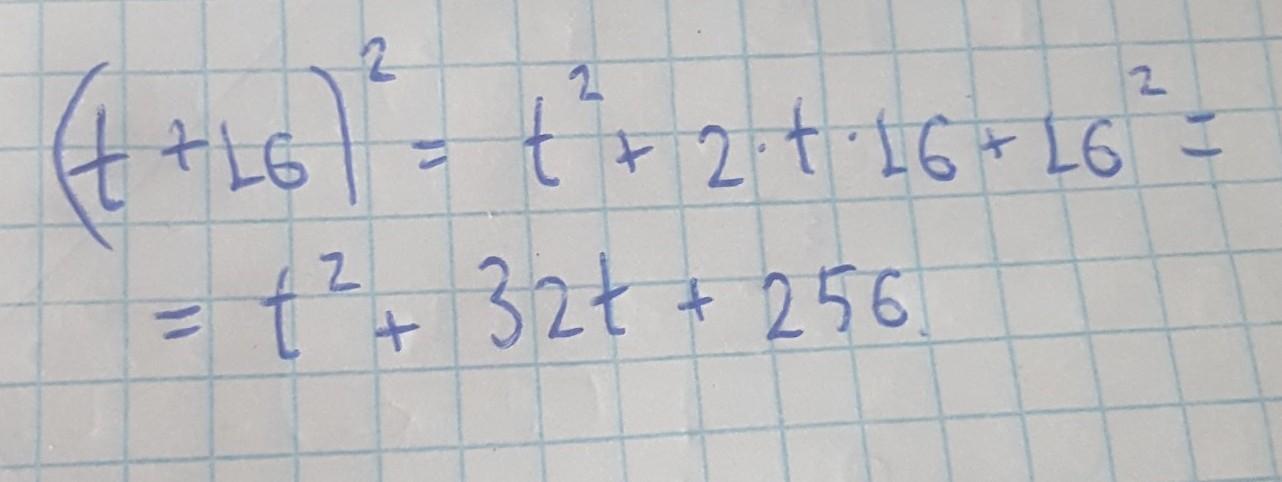 (t + 16)² = t² + 2·t·16 + 16² =
= t² + 32t + 256.